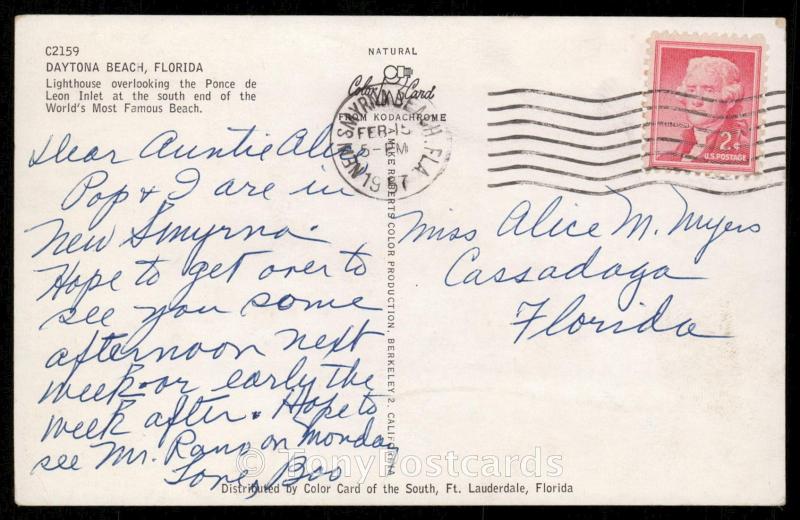 C2159
DAYTONA BEACH, FLORIDA
Lighthouse overlooking the Ponce de
Leon Inlet at the south end of the
World's Most Famous Beach.
NATURAL
Color Card
FROM KODACHROME
MIKE ROBERTS COLOR PRODUCTION, BERKELEY 2, CALIFORNIA
NEW SMYRNA BEACH, FLA.
FEB 15
5-PM
1957
2¢
U.S. POSTAGE
Dear Auntie Alice
Pop & I are in
New Smyrna.
Hope to get over to
see you some
afternoon next
week or early the
week after. Hope to
see Mr. on Monday
Love, Boo
Miss Alice M. Myers
Cassadaga
Florida
© TonyPostcards
Distributed by Color Card of the South, Ft. Lauderdale, Florida